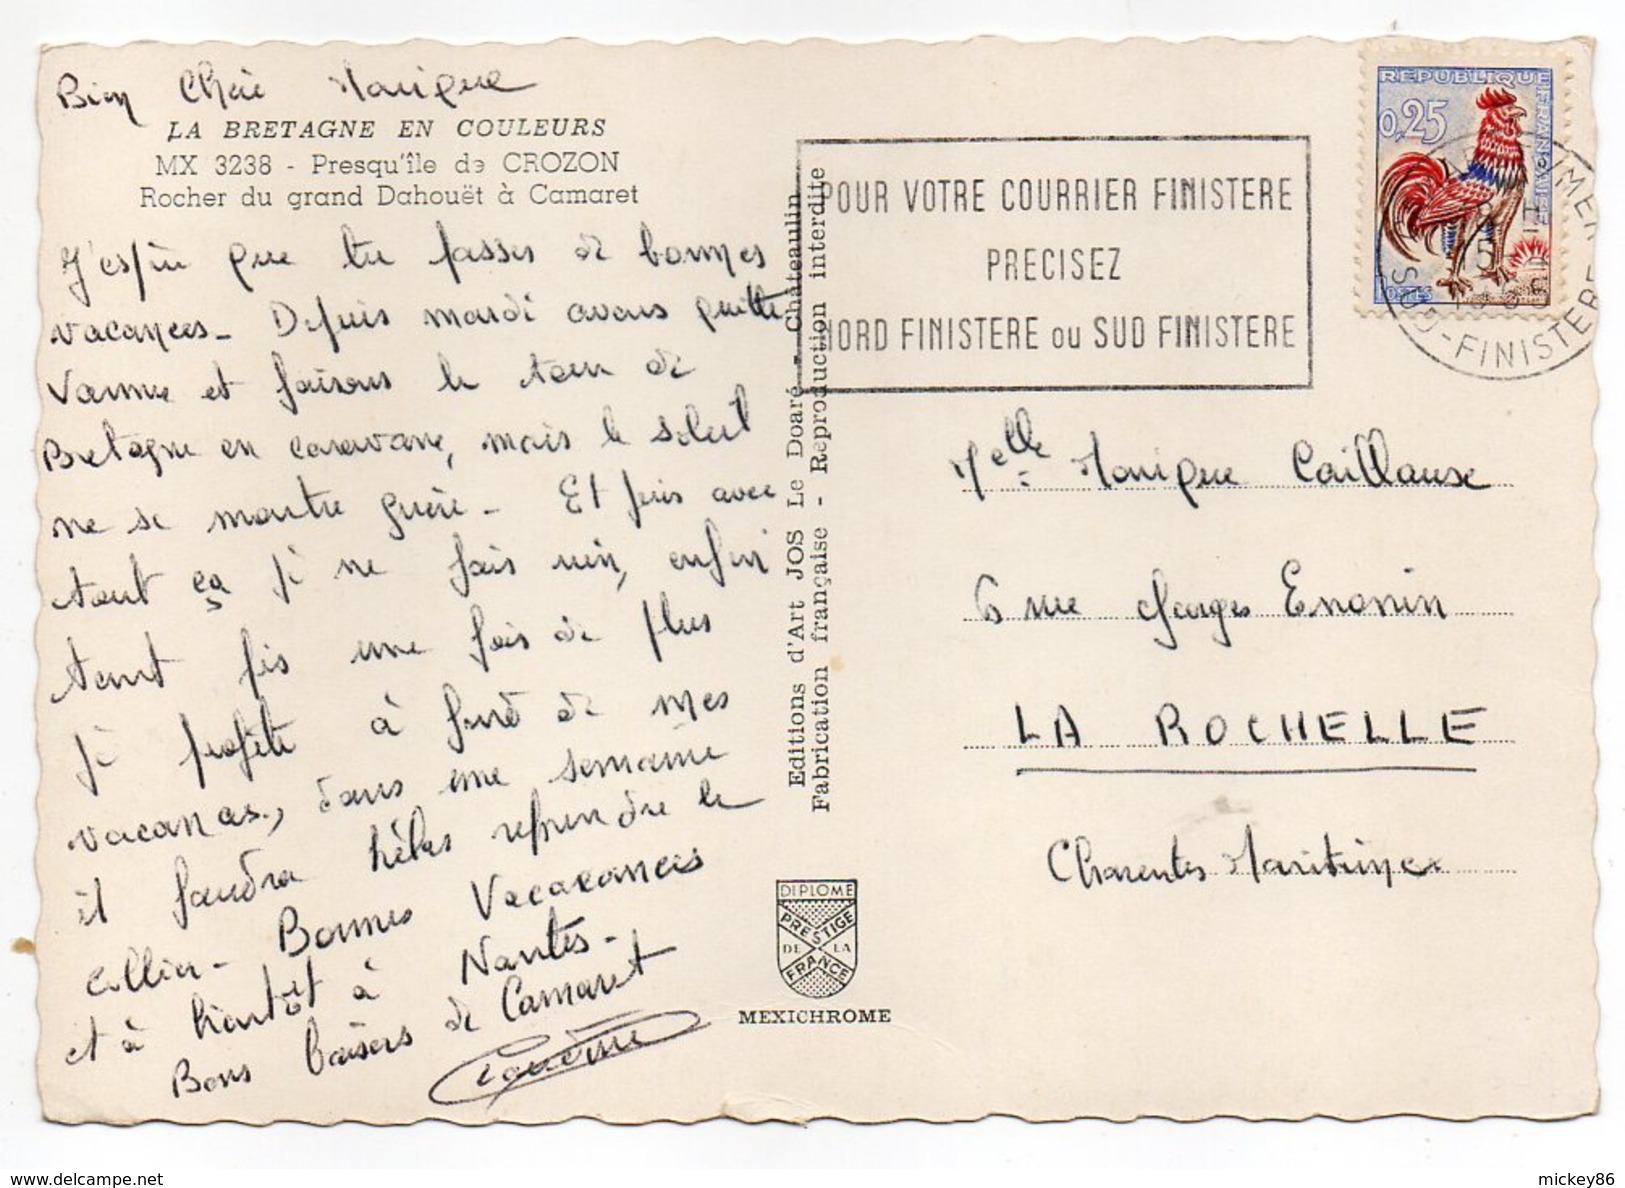 Bien Chère Monique
LA BRETAGNE EN COULEURS
MX 3238 - Presqu'île de CROZON
Rocher du grand Dahouët à Camaret
J'espère que tu passes de bonnes
vacances - Depuis mardi avons quitté
Vannes et faisons le tour de
Bretagne en caravane, mais le soleil
ne se montre guère - Et puis avec
tout ça je ne fais rien, enfin
tant pis une fois de plus
je profite à fond de mes
vacances, dans une semaine
il faudra hélas reprendre le
collier - Bonnes Vacances
et à bientôt à Nantes -
Bons baisers de Camaret
Editions d'Art JOS Le Doaré - Châteaulin
Fabrication française - Reproduction interdite
POUR VOTRE COURRIER FINISTERE
PRECISEZ
NORD FINISTERE ou SUD FINISTERE
REPUBLIQUE FRANÇAISE
0,25
POSTES
SUD-FINISTERE
Melle Monique Caillause
6 rue Georges Enonin
LA ROCHELLE
Charentes Maritime
DIPLOME
PRESTIGE
DE LA
FRANCE
MEXICHROME
mickey86